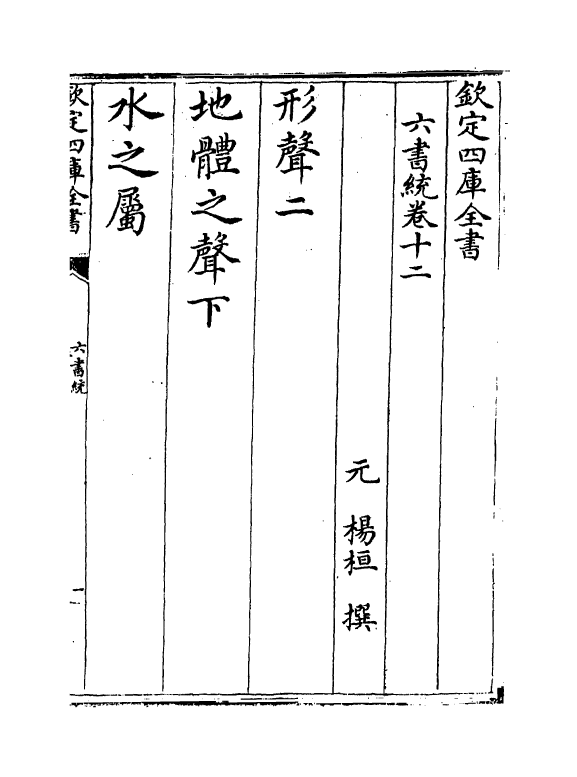 欽定四庫全書
六書統卷十二
元 楊桓 撰
形聲二
地體之聲下
水之屬
欽定四庫全書
六書統
一